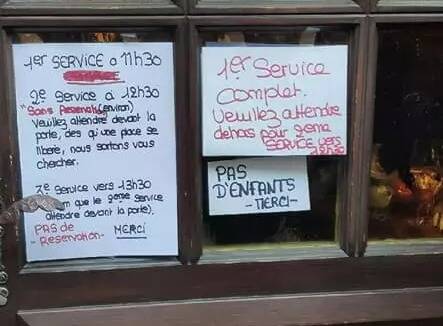 1er SERVICE a 11H30
2e Service a 12H30
"Sans Reservation (environ)
Veuillez attendre devant la
porte, dès qu'une place se
libère, nous sortons vous
chercher.
3e Service vers 13H30
que le 2eme service
attendre devant la porte).
PAS de
-Reservation- MERCI
1er Service
Complet.
Veuillez attendre
dehors pour 2eme
SERVICE vers
12H30
PAS
D'ENFANTS
-MERCI-